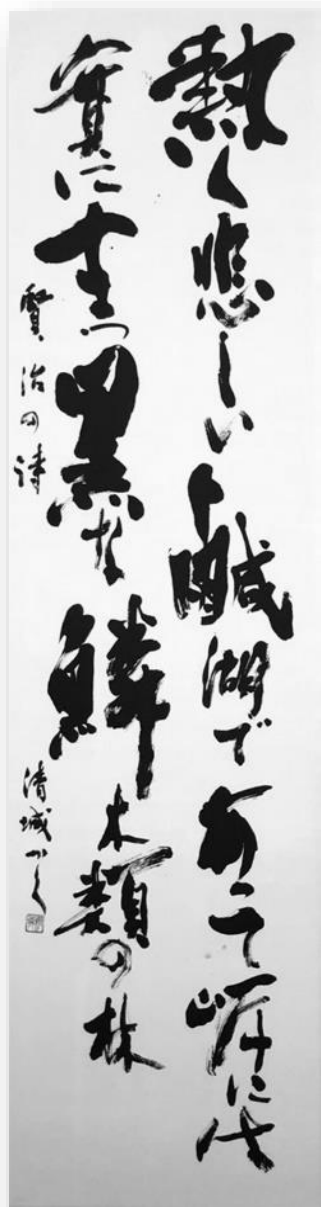 熱く悲しい鹹湖であって岸には
實に真っ黒な鱗木類の林
賢治の詩
清城かく